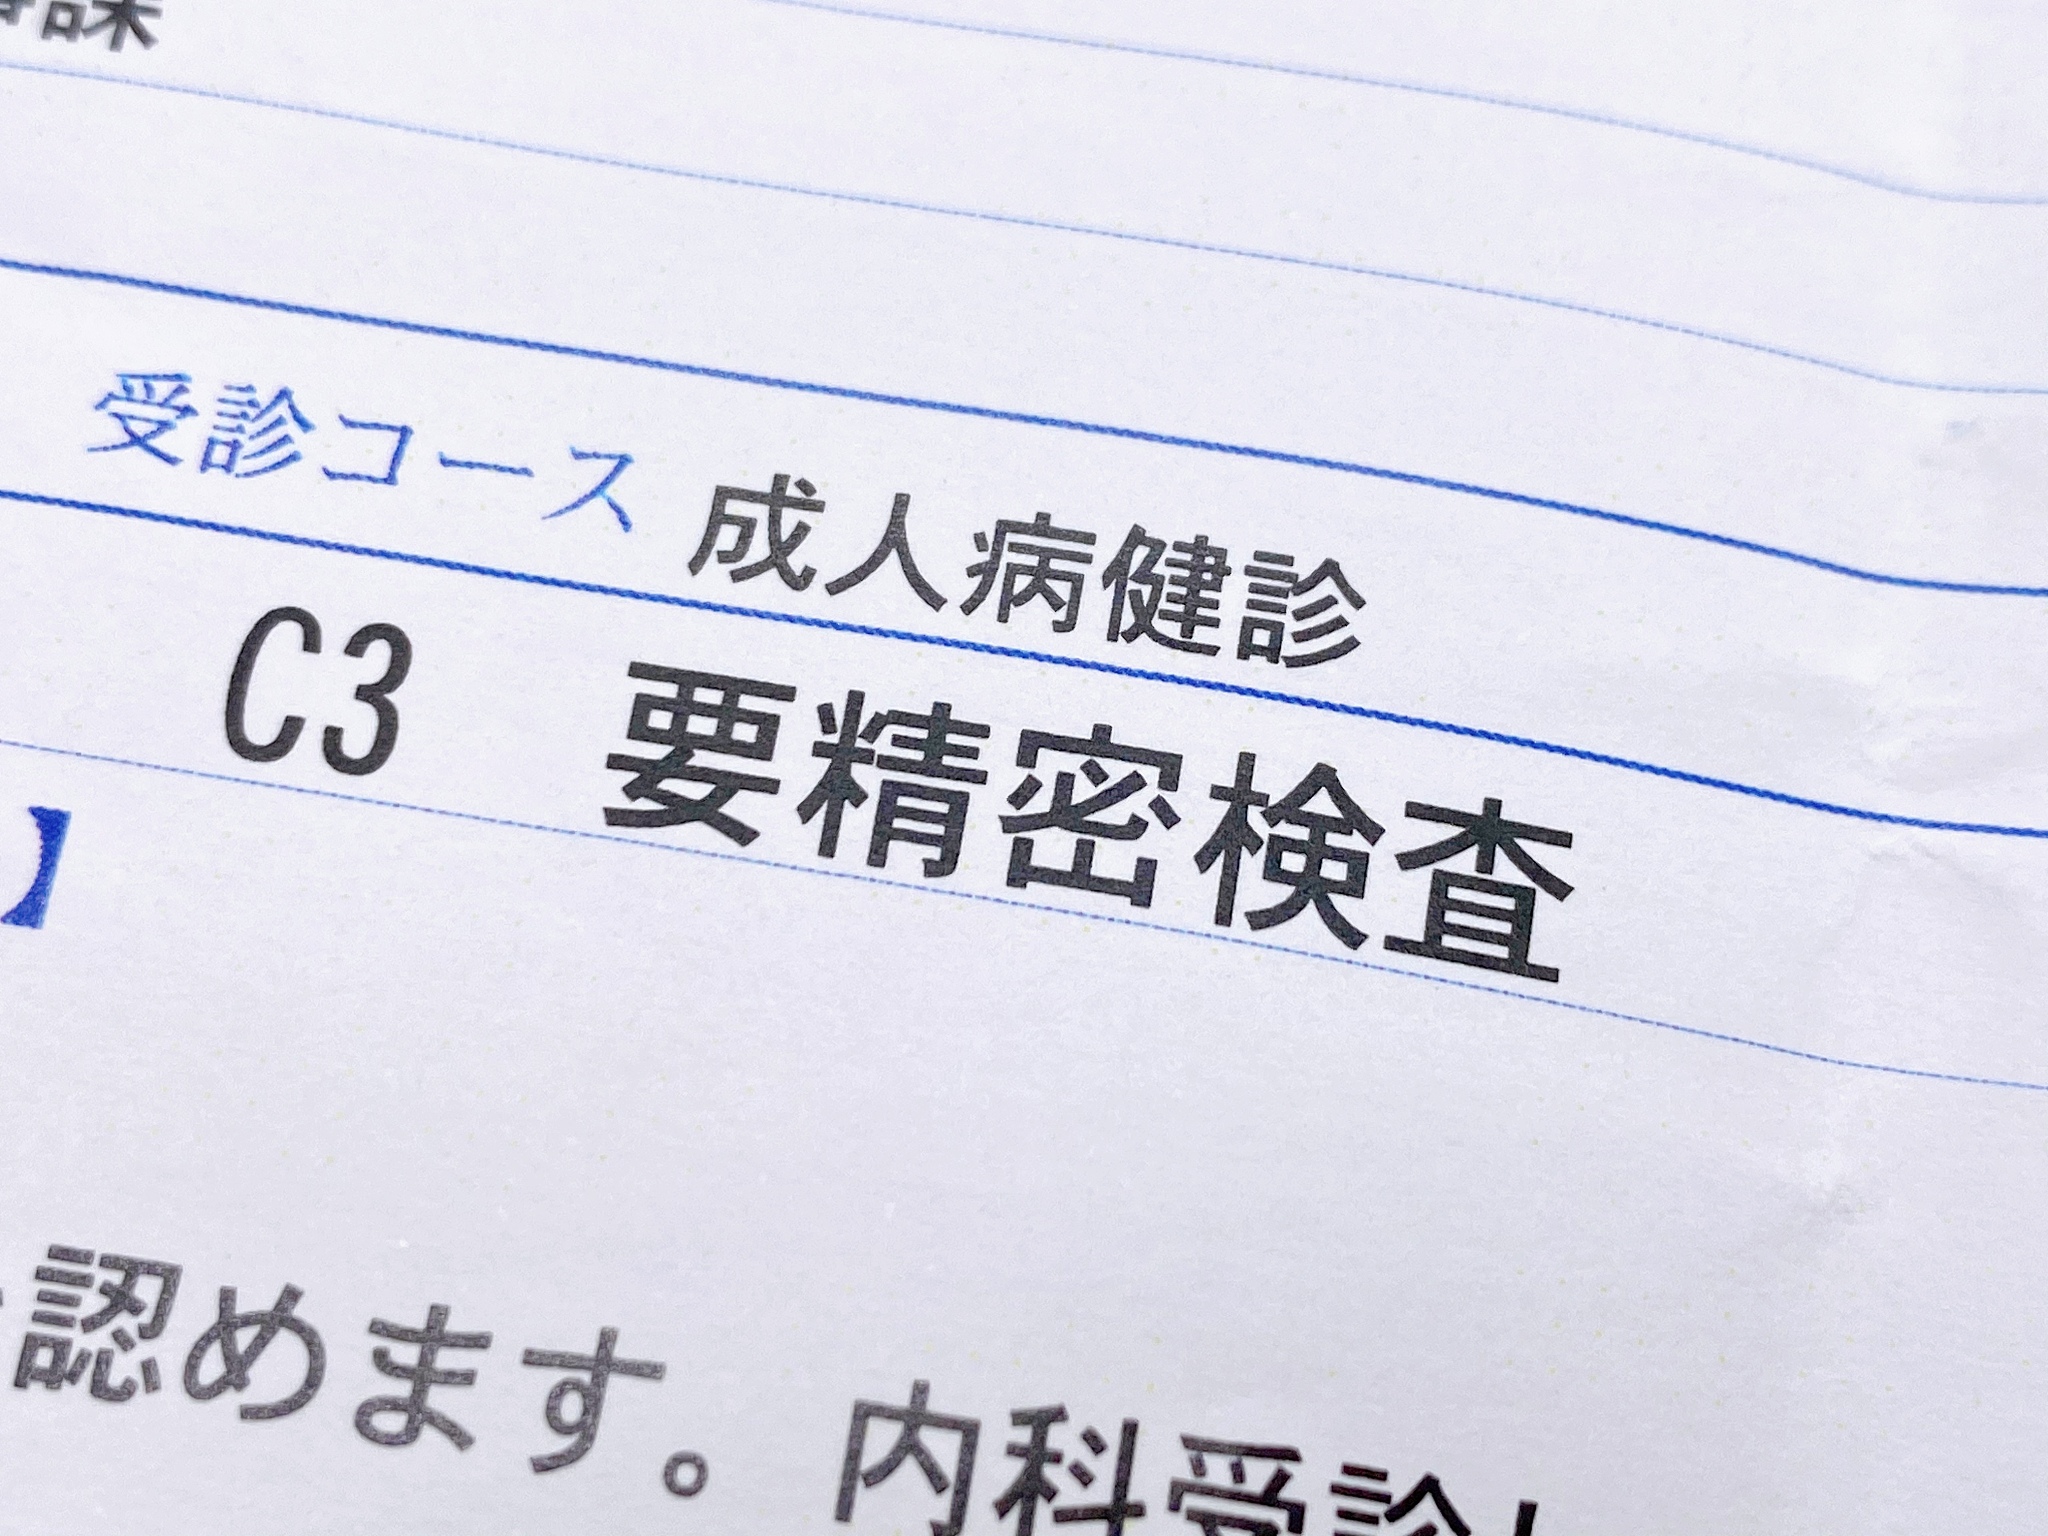 課
受診コース 成人病健診
C3 要精密検査
】
認めます。内科受診し